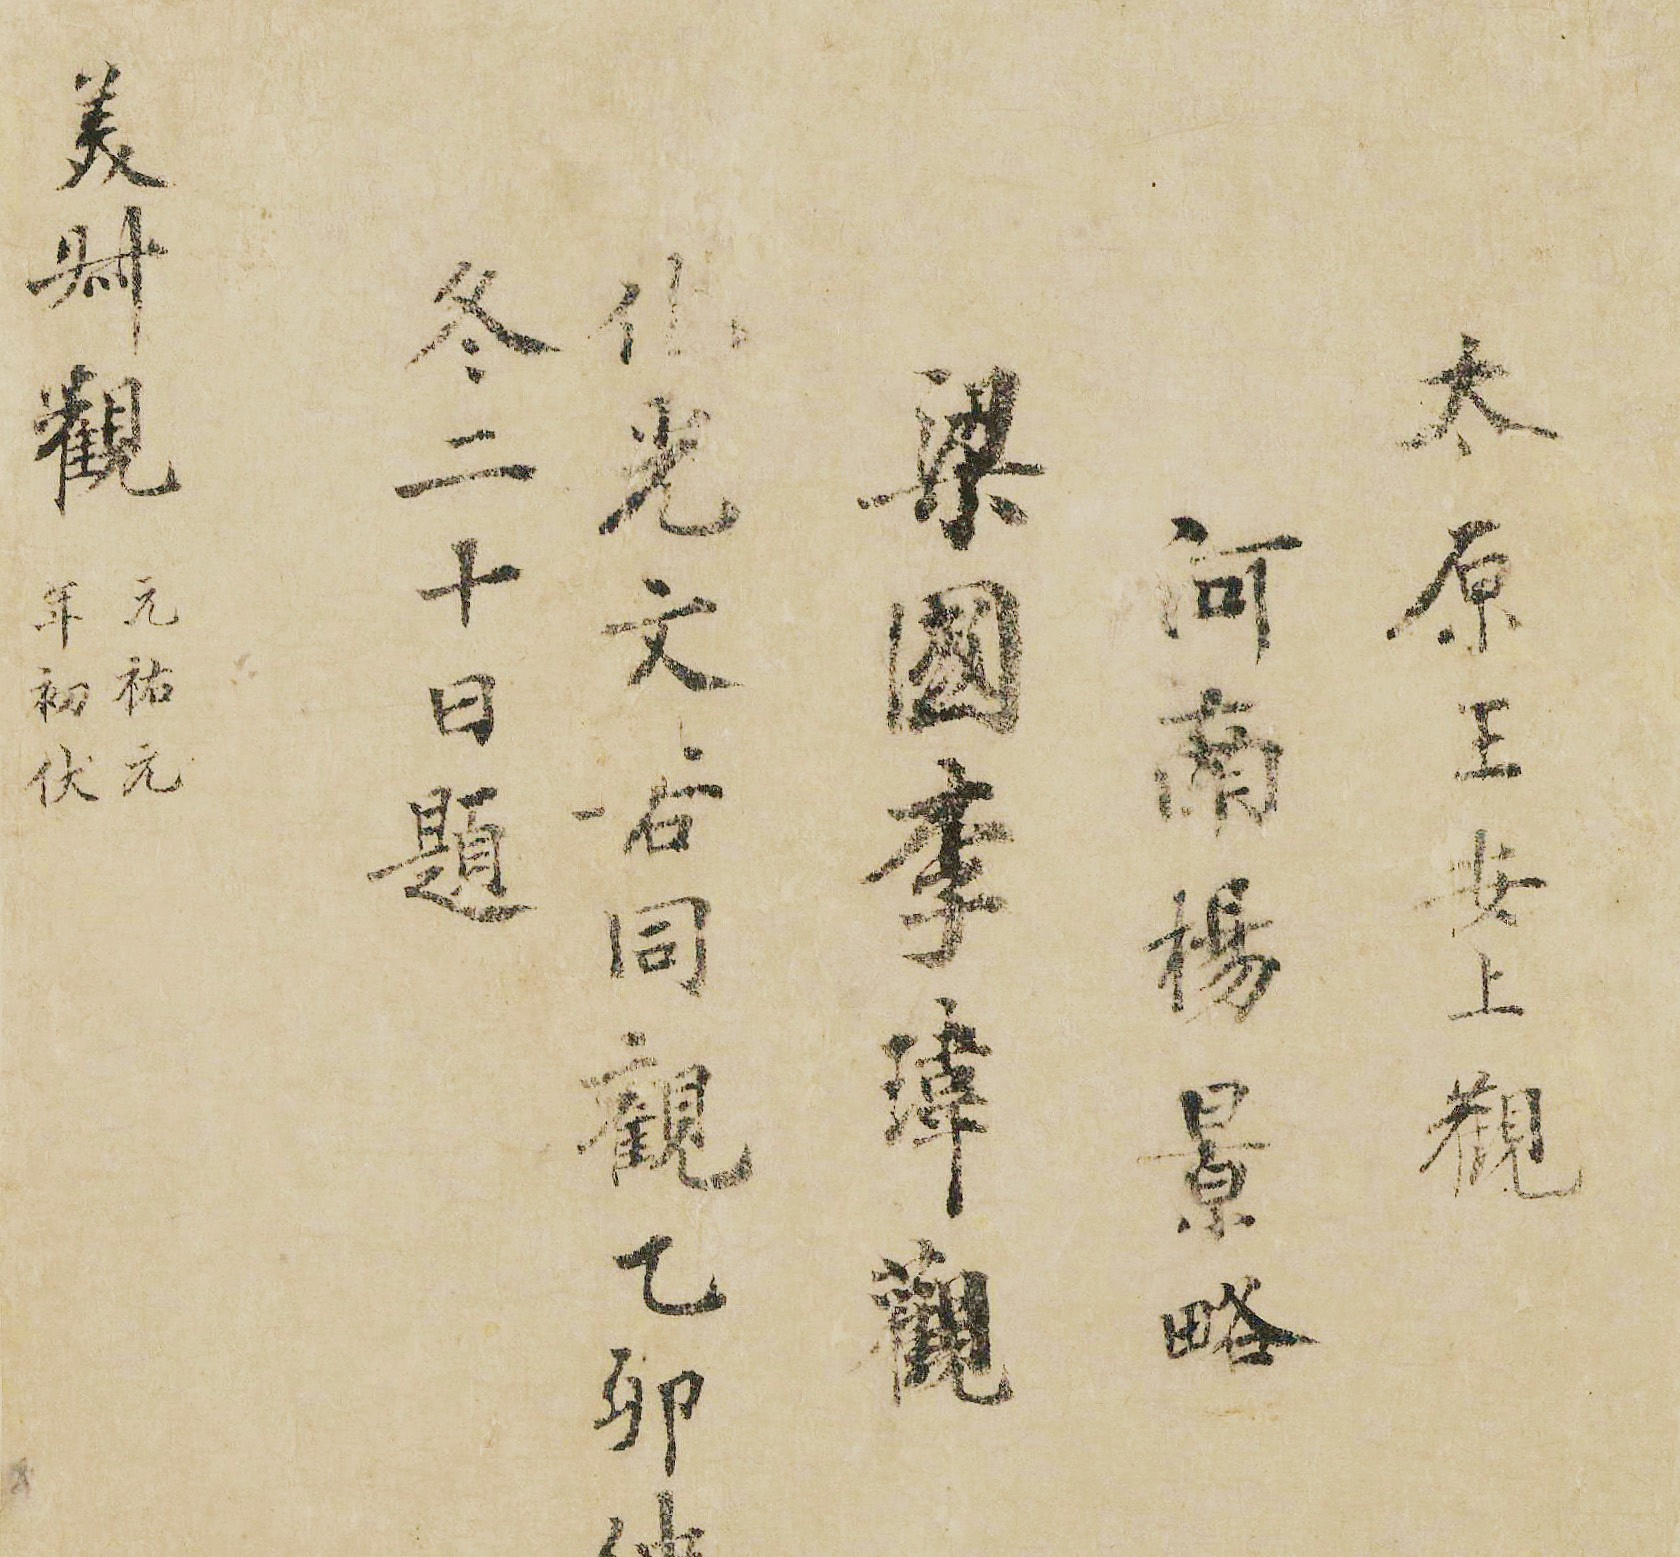 太原王安上觀
河南楊景略
梁國李瑋觀
光文同觀乙卯仲
冬二十日題
美叔觀
元祐元
年初伏